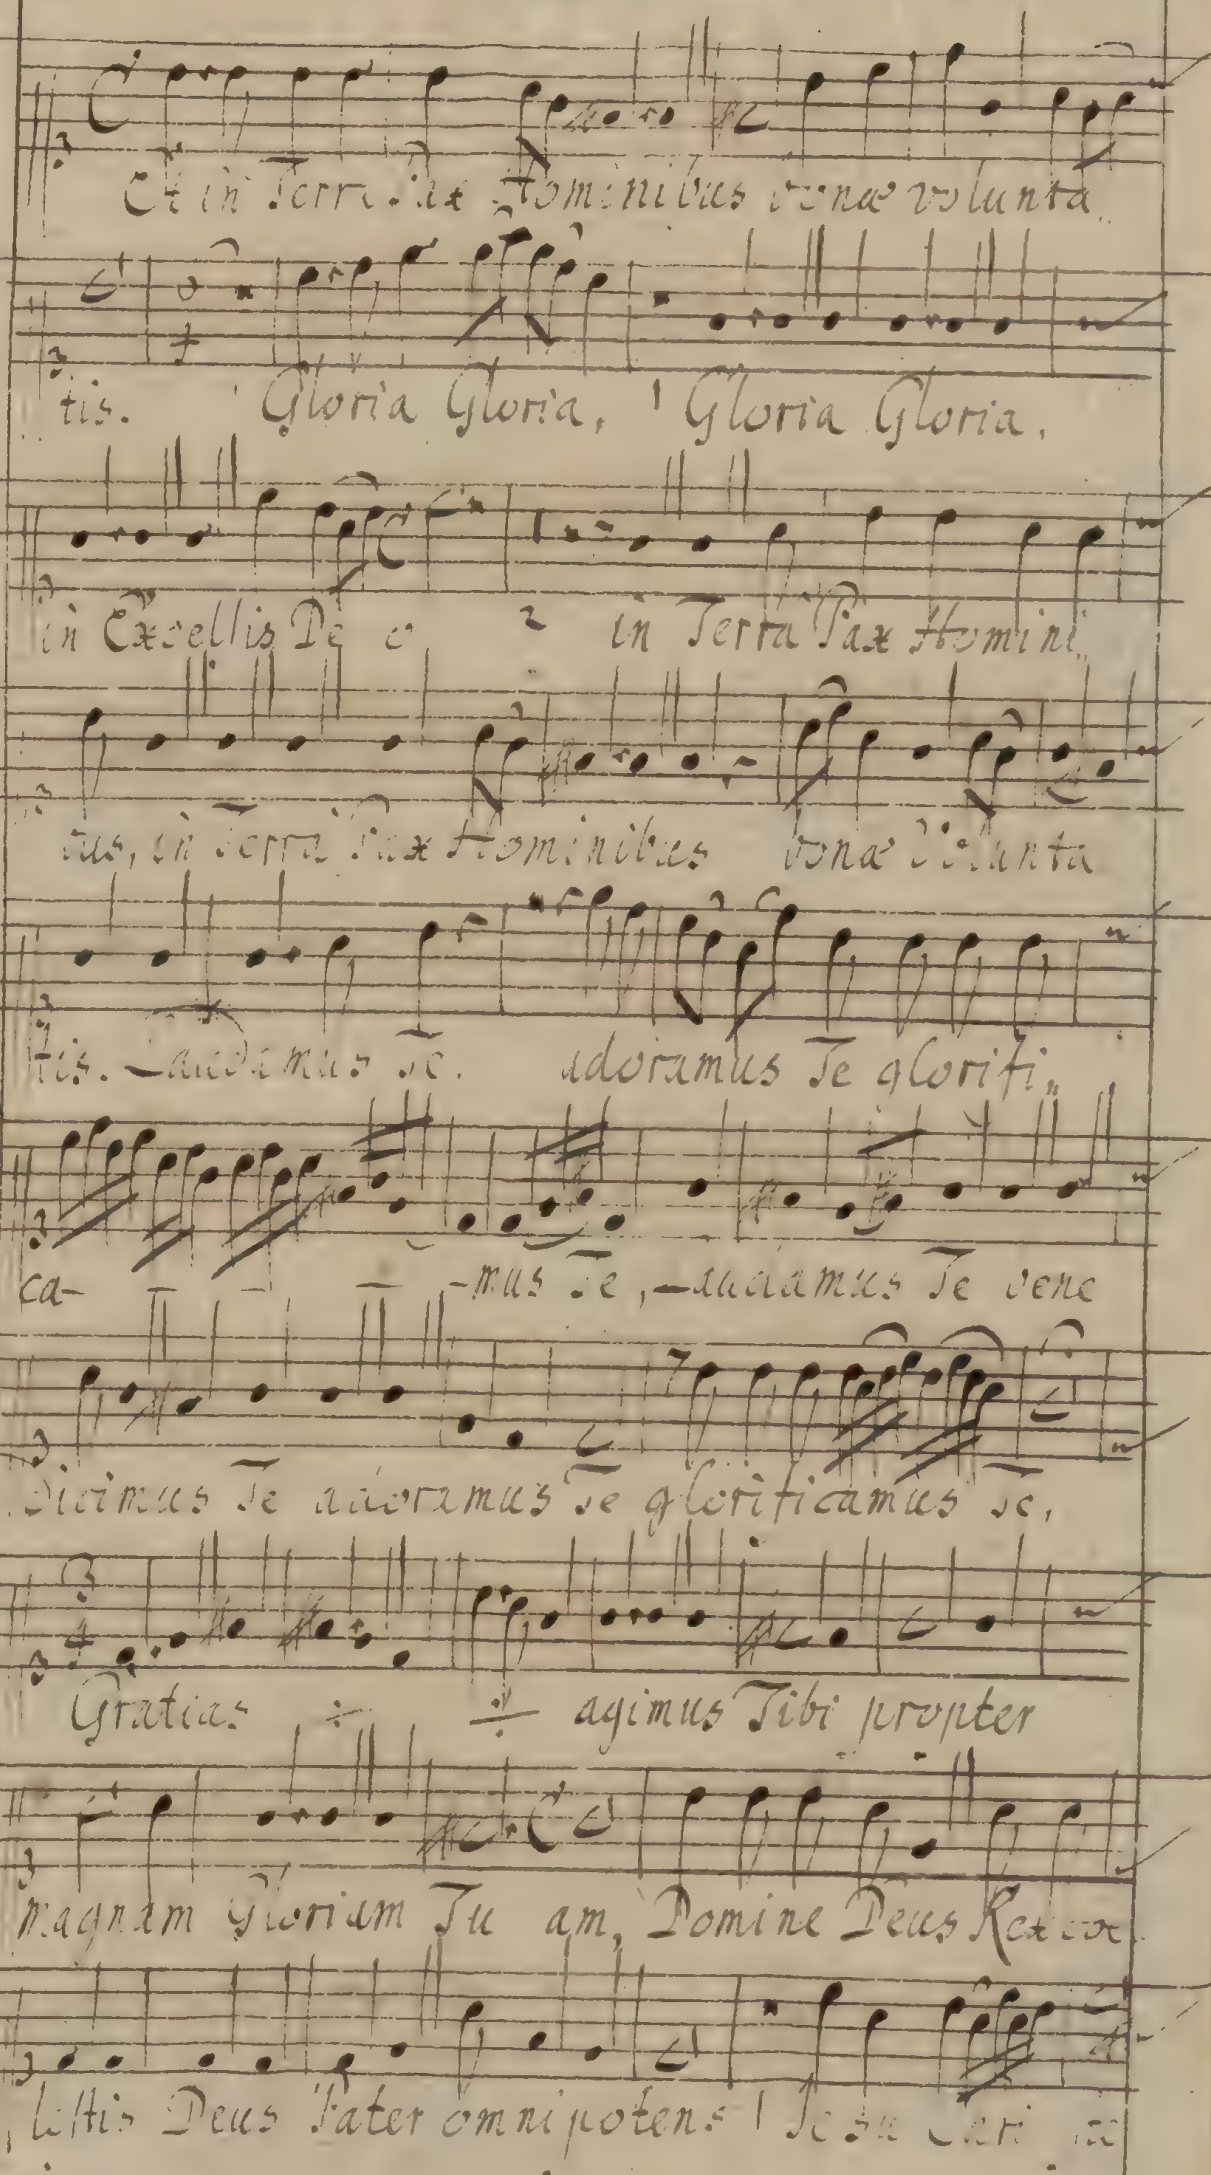 Et in Terra Pax Hominibus bonæ volunta„
tis. Gloria Gloria, Gloria Gloria.
in Excelsis De o 2 in Terra Pax Homini„
bus, in Terra Pax Hominibus bonæ Volunta
tis. Laudamus Te. adoramus Te glorifi„
ca- - - - -mus Te, Laudamus Te bene
Dicimus Te adoramus Te glorificamus Te,
3 4
Gratias ÷ ÷ agimus Tibi propter
magnam Gloriam Tu am, Domine Deus Rex cœ
lestis Deus Pater omnipotens Jesu